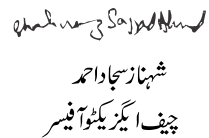 Shahnaz Sajjad Ahmad
شہناز سجاد احمد
چیف ایگزیکٹو آفیسر